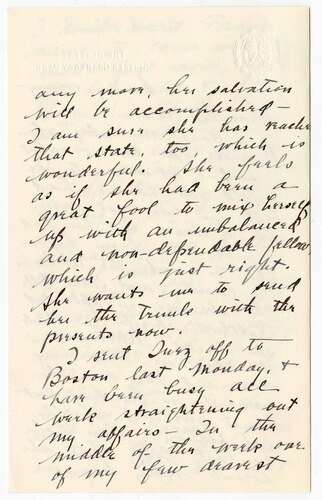 any more, her salvation
will be accomplished –
I am sure she has reached
that state, too, which is
wonderful. She feels
as if she had been a
great fool to mix herself
up with an unbalanced
and non-dependable fellow,
which is just right.
She wants me to send
her the trunk with the
presents now.
I sent Inez off to
Boston last Monday, &
have been busy all
week straightening out
my affairs – In the
middle of the week one
of my few dearest